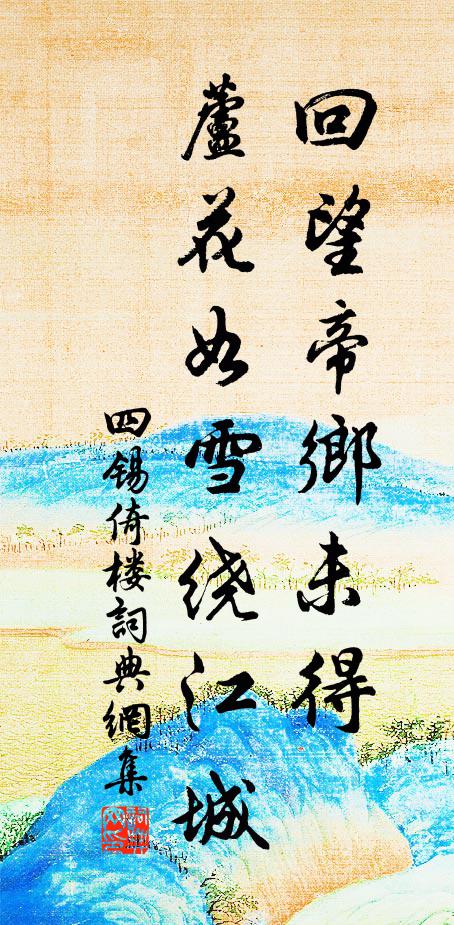 回望帝鄉未得
蘆花如雪绕江城
四锡倚楼詞典網集